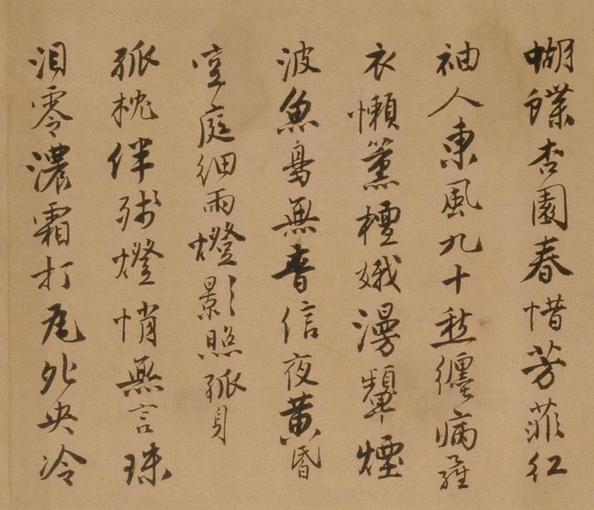 蝴蝶杏園春惜芳菲紅
袖人東風九十愁纏病羅
衣懶薰檀娥漫顰煙
波魚鳥無音信夜黃昏
空庭細雨燈影照孤身
孤枕伴殘燈悄無言珠
泪零濃霜打瓦夗央冷